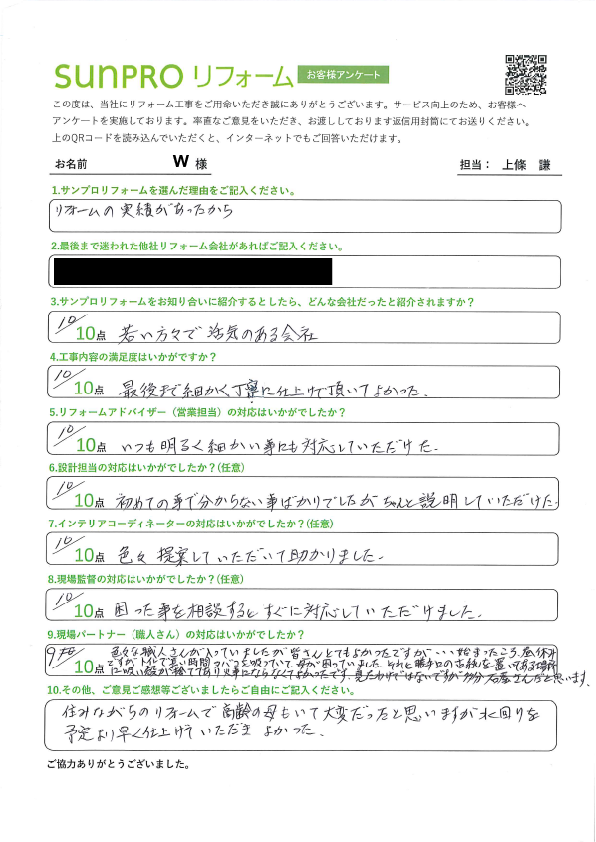 sunPRO リフォーム お客様アンケート
この度は、当社にリフォーム工事をご用命いただき誠にありがとうございます。サービス向上のため、お客様へ
アンケートを実施しております。率直なご意見をいただき、お渡ししております返信用封筒にてお送りください。
上のQRコードを読み込んでいただくと、インターネットでもご回答いただけます。
お名前 W 様 担当： 上條 謙
1.サンプロリフォームを選んだ理由をご記入ください。
リフォームの実績があったから
2.最後まで迷われた他社リフォーム会社があればご記入ください。
3.サンプロリフォームをお知り合いに紹介するとしたら、どんな会社だったと紹介されますか？
10/10点 若い方々で活気のある会社
4.工事内容の満足度はいかがですか？
10/10点 最後まで細かく丁寧に仕上げて頂いてよかった。
5.リフォームアドバイザー（営業担当）の対応はいかがでしたか？
10/10点 いつも明るく細かい事にも対応していただけた。
6.設計担当の対応はいかがでしたか？(任意)
10/10点 初めての事で分からない事ばかりでしたが ちゃんと説明していただけた。
7.インテリアコーディネーターの対応はいかがでしたか？(任意)
10/10点 色々提案していただいて助かりました。
8.現場監督の対応はいかがでしたか？(任意)
10/10点 困った事を相談するとすぐに対応していただけました。
9.現場パートナー（職人さん）の対応はいかがでしたか？
色々な職人さんが入っていましたが皆さんとてもよかったですが・・・始まったころ、昼休み
9点/10点 ですがトイレで長い時間タバコを吸っていて母が困っていました。それと勝手口の古紙を置いてある場所
に吸い殻が捨ててあり火事にならなくてよかったです。見たわけではないですが多分石屋さんだと思います、
10.その他、ご意見ご感想等ございましたらご自由にご記入ください。
住みながらのリフォームで高齢の母もいて大変だったと思いますが水回りを
予定より早く仕上げていただきよかった。
ご協力ありがとうございました。